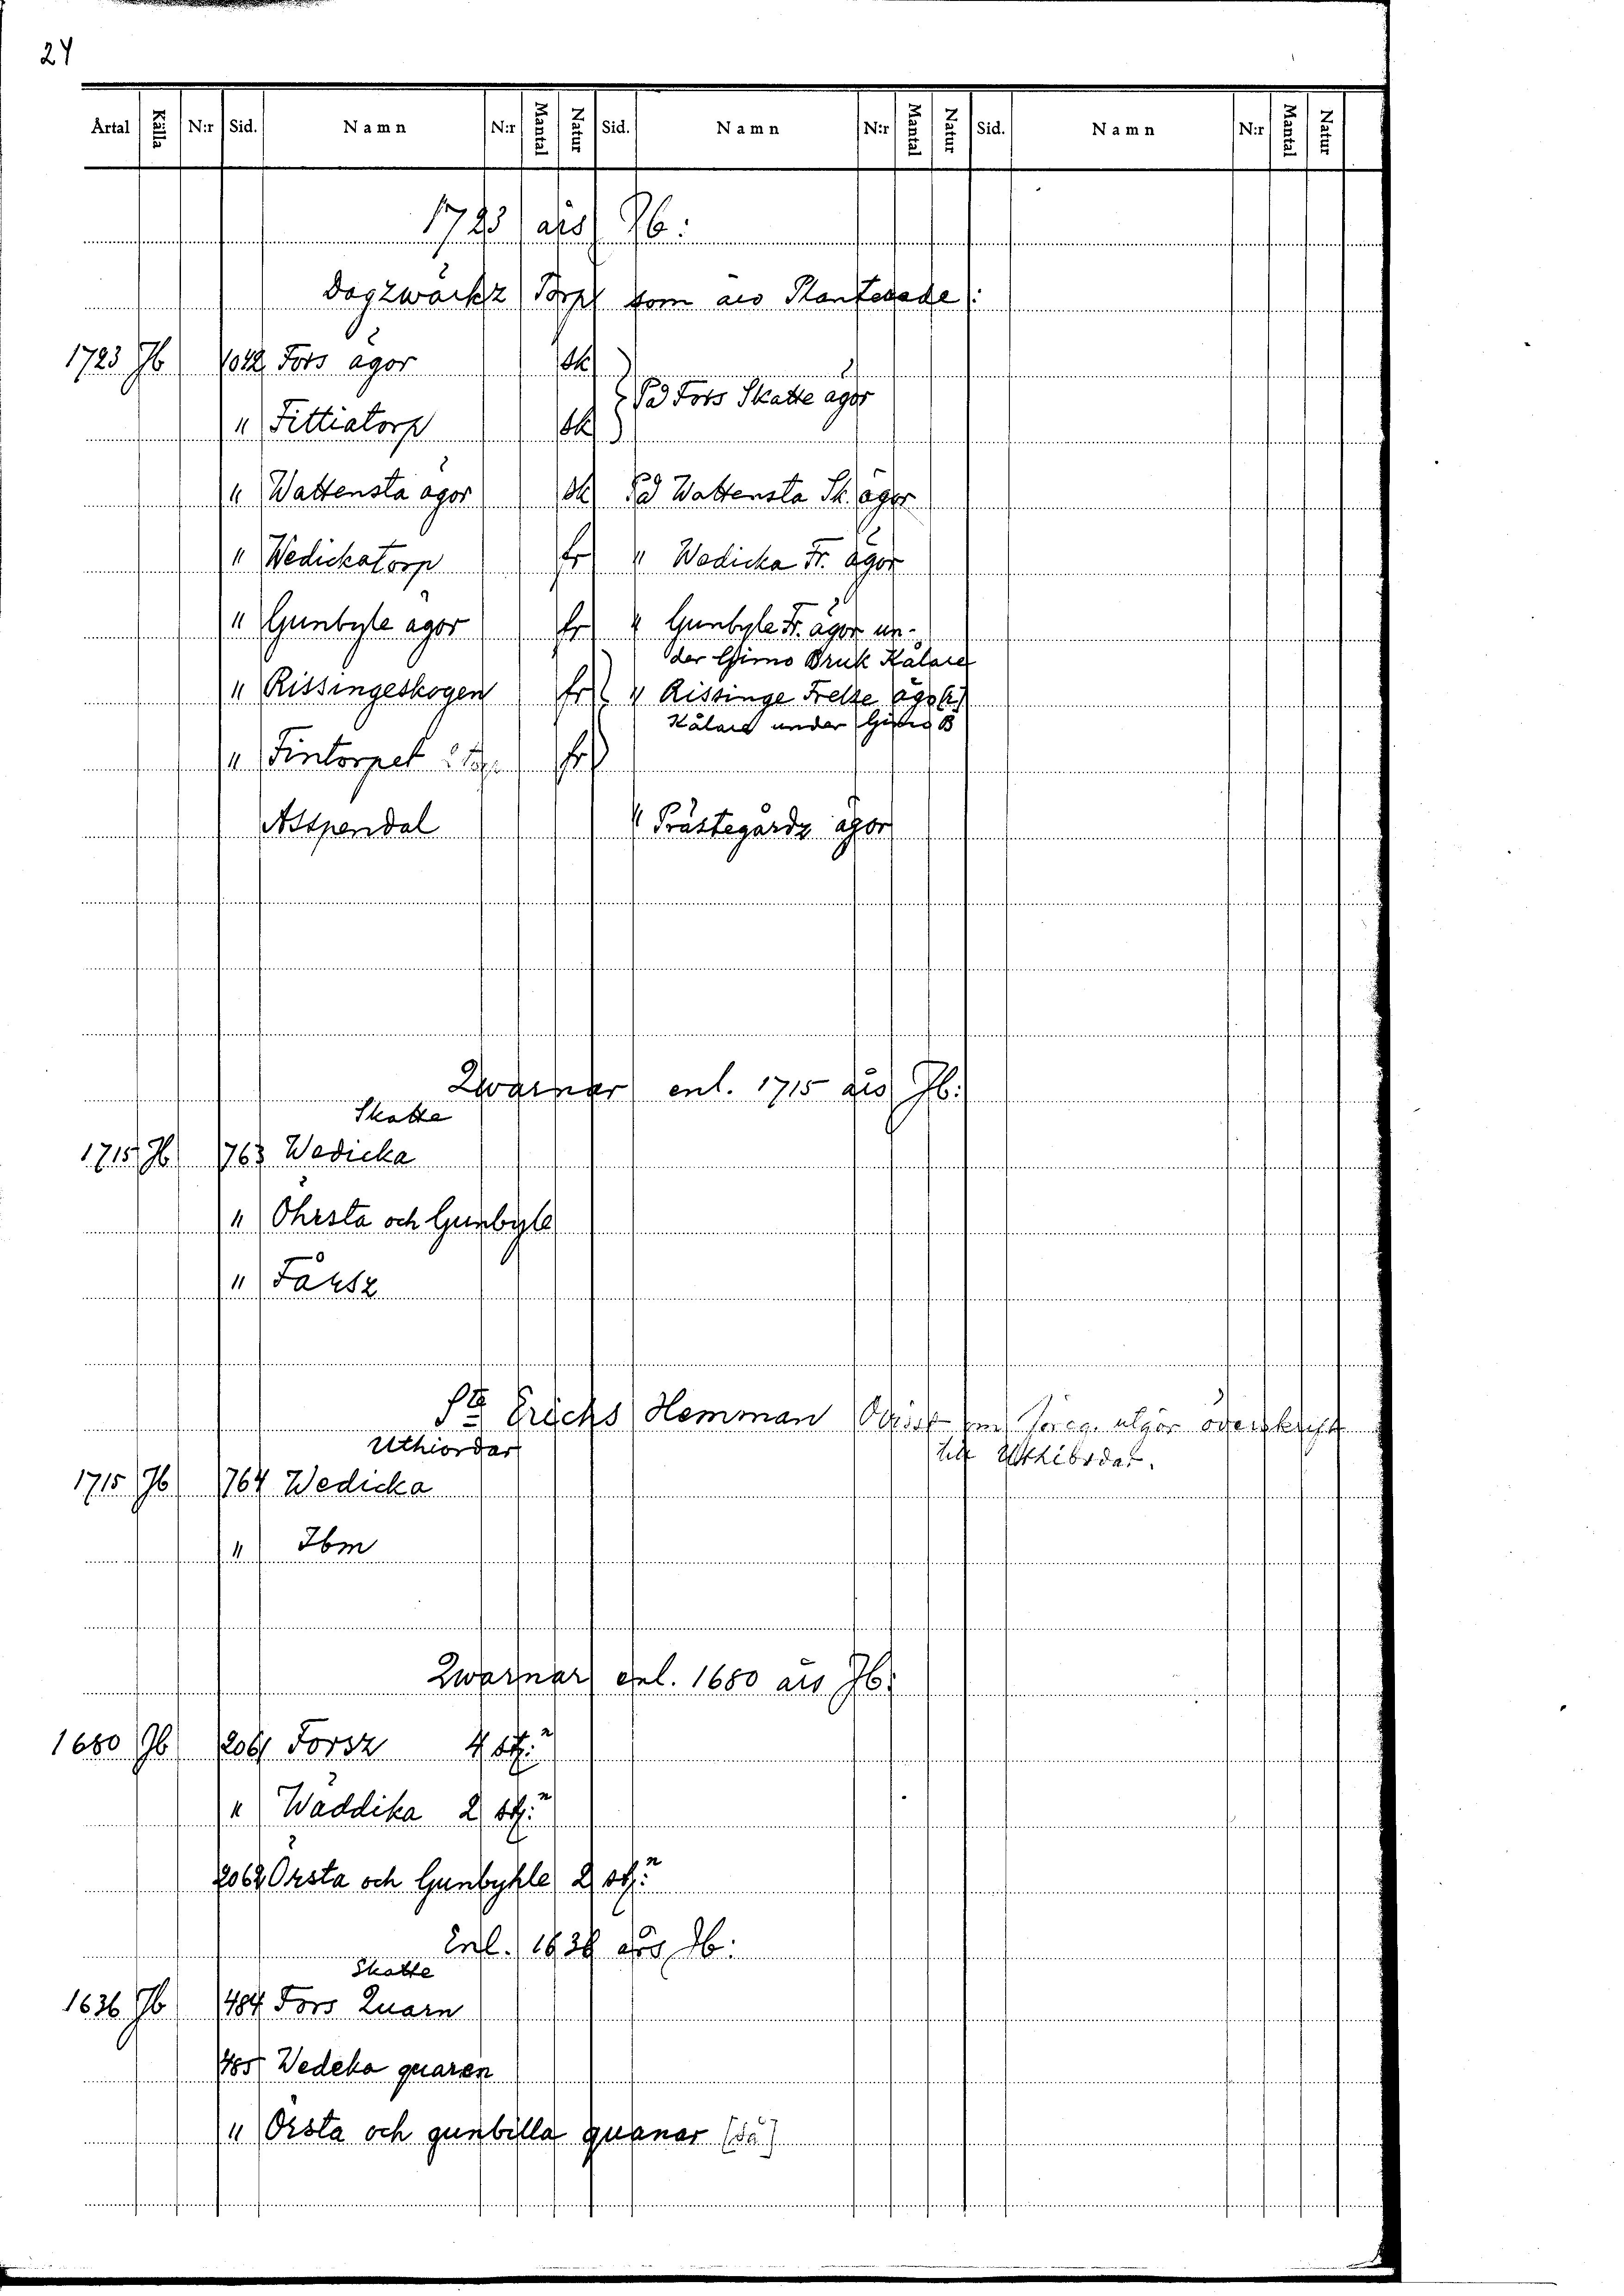 24
Årtal Källa N:r Sid. Namn N:r Mantal Natur Sid. Namn N:r Mantal Natur Sid. Namn N:r Mantal Natur
1723 års Jb:
Dagzwärkz Torp som äro Planterade:
1723 Jb 1042 Fors ägor sk
På Fors Skatte ägor
" Fittiatorp sk
" Wattensta ägor sk På Wattensta Sk. ägor
" Wedickatorp fr " Wedicka Fr. ägor
" Gunbyle ägor fr " Gunbyle Fr. ägor un-
der Gimo Bruk Kålare
" Rissingeskogen fr " Rissinge Frelse ägo[r]
Kålare under Gimo B
" Fintorpet fr
Asspendal " Prästegårdz ägor
Qwarnar enl. 1715 års Jb:
Skatte
1715 Jb 763 Wedicka
" Öhrsta och Gunbyle
" Fårsz
Ste Erichs Hemman Ovisst om föreg. utgör överskrift
Uthiordar till Uthiordar.
1715 Jb 764 Wedicka
" Ibm
Qwarnar enl. 1680 års Jb:
1680 Jb 2061 Forsz 4 st:n
" Wäddika 2 st:n
2062 Örsta och Gunbyhle 2 st:n
Enl. 1636 års Jb:
Skatte
1636 Jb 484 Fors Quarn
485 Wedeka quaren
" Örsta och gunbilla quanar [så]